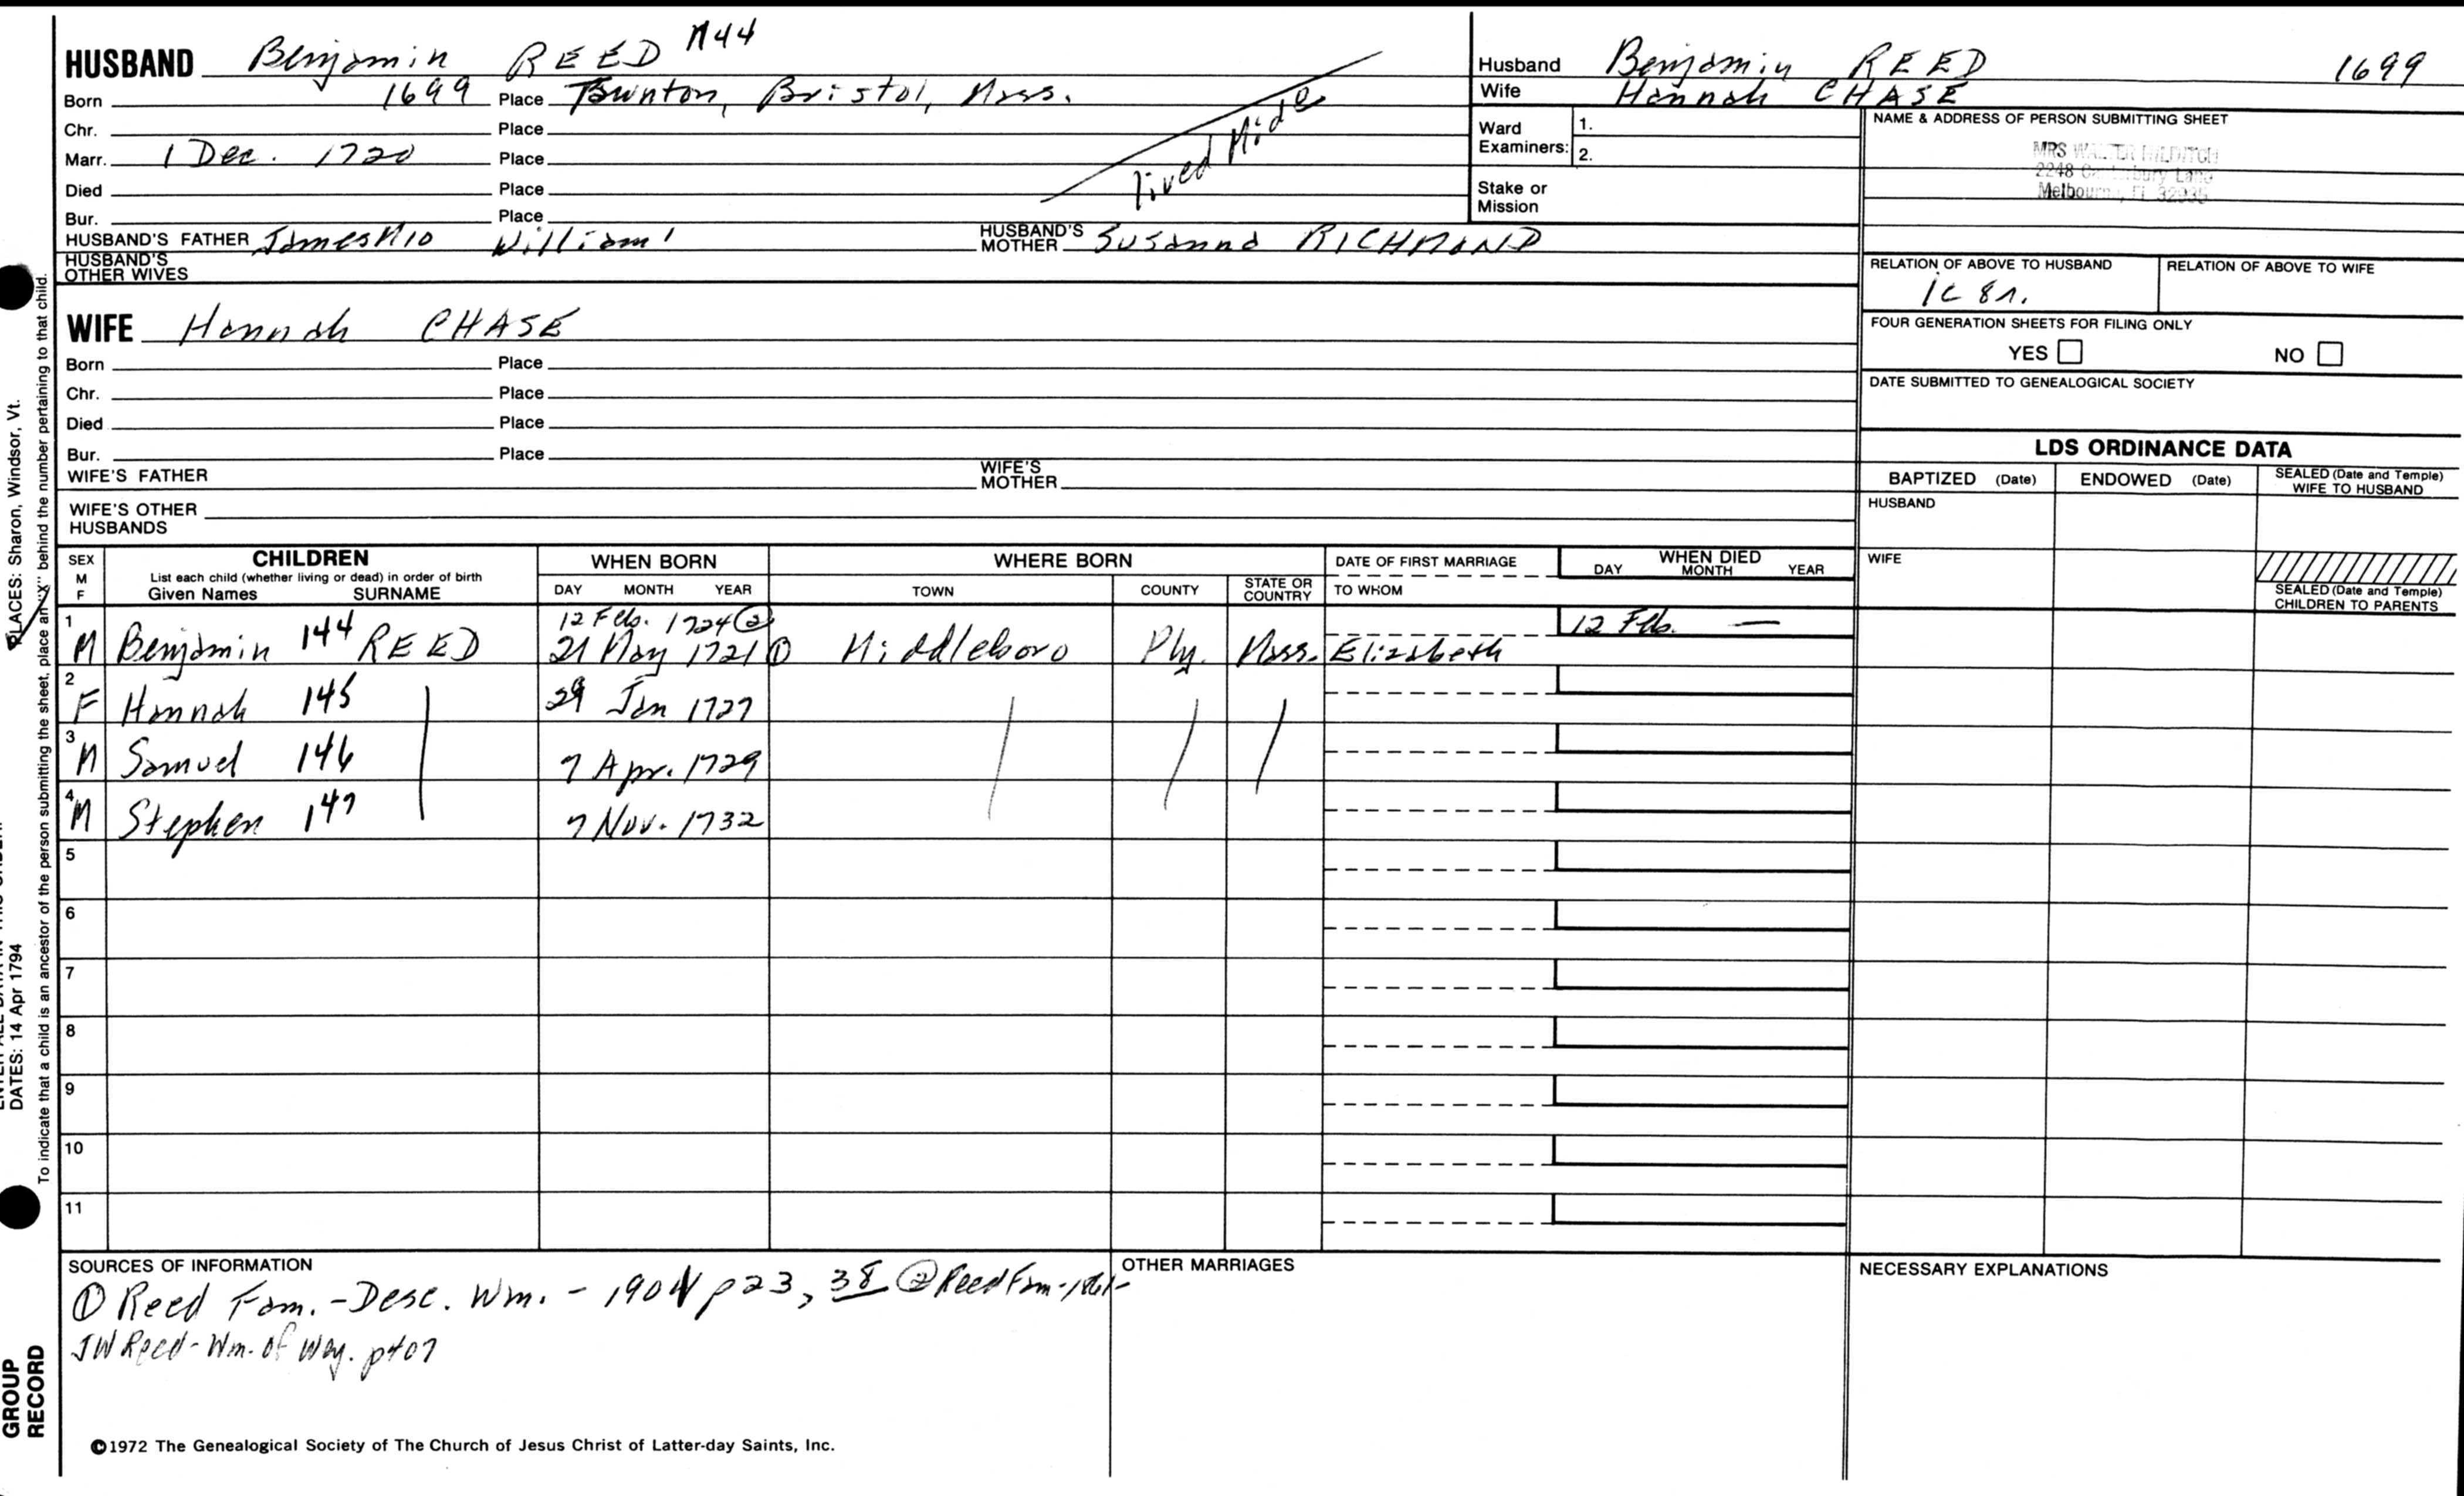 HUSBAND Benjamin REED M44
Born 1699 Place Taunton, Bristol, Mass.
Chr. Place
Marr. 1 Dec. 1720 Place
Died Place
Bur. Place
lived Midd
HUSBAND'S FATHER James M10 William 1 HUSBAND'S MOTHER Susanna RICHMOND
HUSBAND'S OTHER WIVES
WIFE Hannah CHASE
Born Place
Chr. Place
Died Place
Bur. Place
WIFE'S FATHER WIFE'S MOTHER
WIFE'S OTHER HUSBANDS
Husband Benjamin REED 1699
Wife Hannah CHASE
Ward Examiners: 1.
2.
Stake or Mission
NAME & ADDRESS OF PERSON SUBMITTING SHEET
MRS
2248 Lane
Melbourne, FL
RELATION OF ABOVE TO HUSBAND RELATION OF ABOVE TO WIFE
1C 8r.
FOUR GENERATION SHEETS FOR FILING ONLY
YES NO
DATE SUBMITTED TO GENEALOGICAL SOCIETY
LDS ORDINANCE DATA
BAPTIZED (Date) ENDOWED (Date) SEALED (Date and Temple) WIFE TO HUSBAND
HUSBAND
WIFE
SEALED (Date and Temple) CHILDREN TO PARENTS
SEX M F CHILDREN WHEN BORN WHERE BORN DATE OF FIRST MARRIAGE WHEN DIED
List each child (whether living or dead) in order of birth
Given Names SURNAME DAY MONTH YEAR TOWN COUNTY STATE OR COUNTRY TO WHOM DAY MONTH YEAR
12 Feb. 1724 ② 12 Feb. —
1 M Benjamin 144 REED 21 May 1721 ① Middleboro Ply. Mass. Elizabeth
2 F Hannah 145 29 Jan 1727
3 M Samuel 146 7 Apr. 1729
4 M Stephen 147 7 Nov. 1732
5
6
7
8
9
10
11
SOURCES OF INFORMATION
① Reed Fam. - Desc. Wm. - 1901 p 23, 38 ② Reed Fam - 1861 -
JW Reed - Wm. of Wey. p407
OTHER MARRIAGES
NECESSARY EXPLANATIONS
©1972 The Genealogical Society of The Church of Jesus Christ of Latter-day Saints, Inc.
PLACES: Sharon, Windsor, Vt.
DATES: 14 Apr 1794
To indicate that a child is an ancestor of the person submitting the sheet, place an "X" behind the number pertaining to that child.
GROUP
RECORD